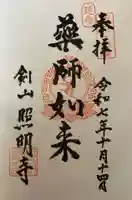 奉拝
令和七年十月十四日
薬師如来
剣山 照明寺